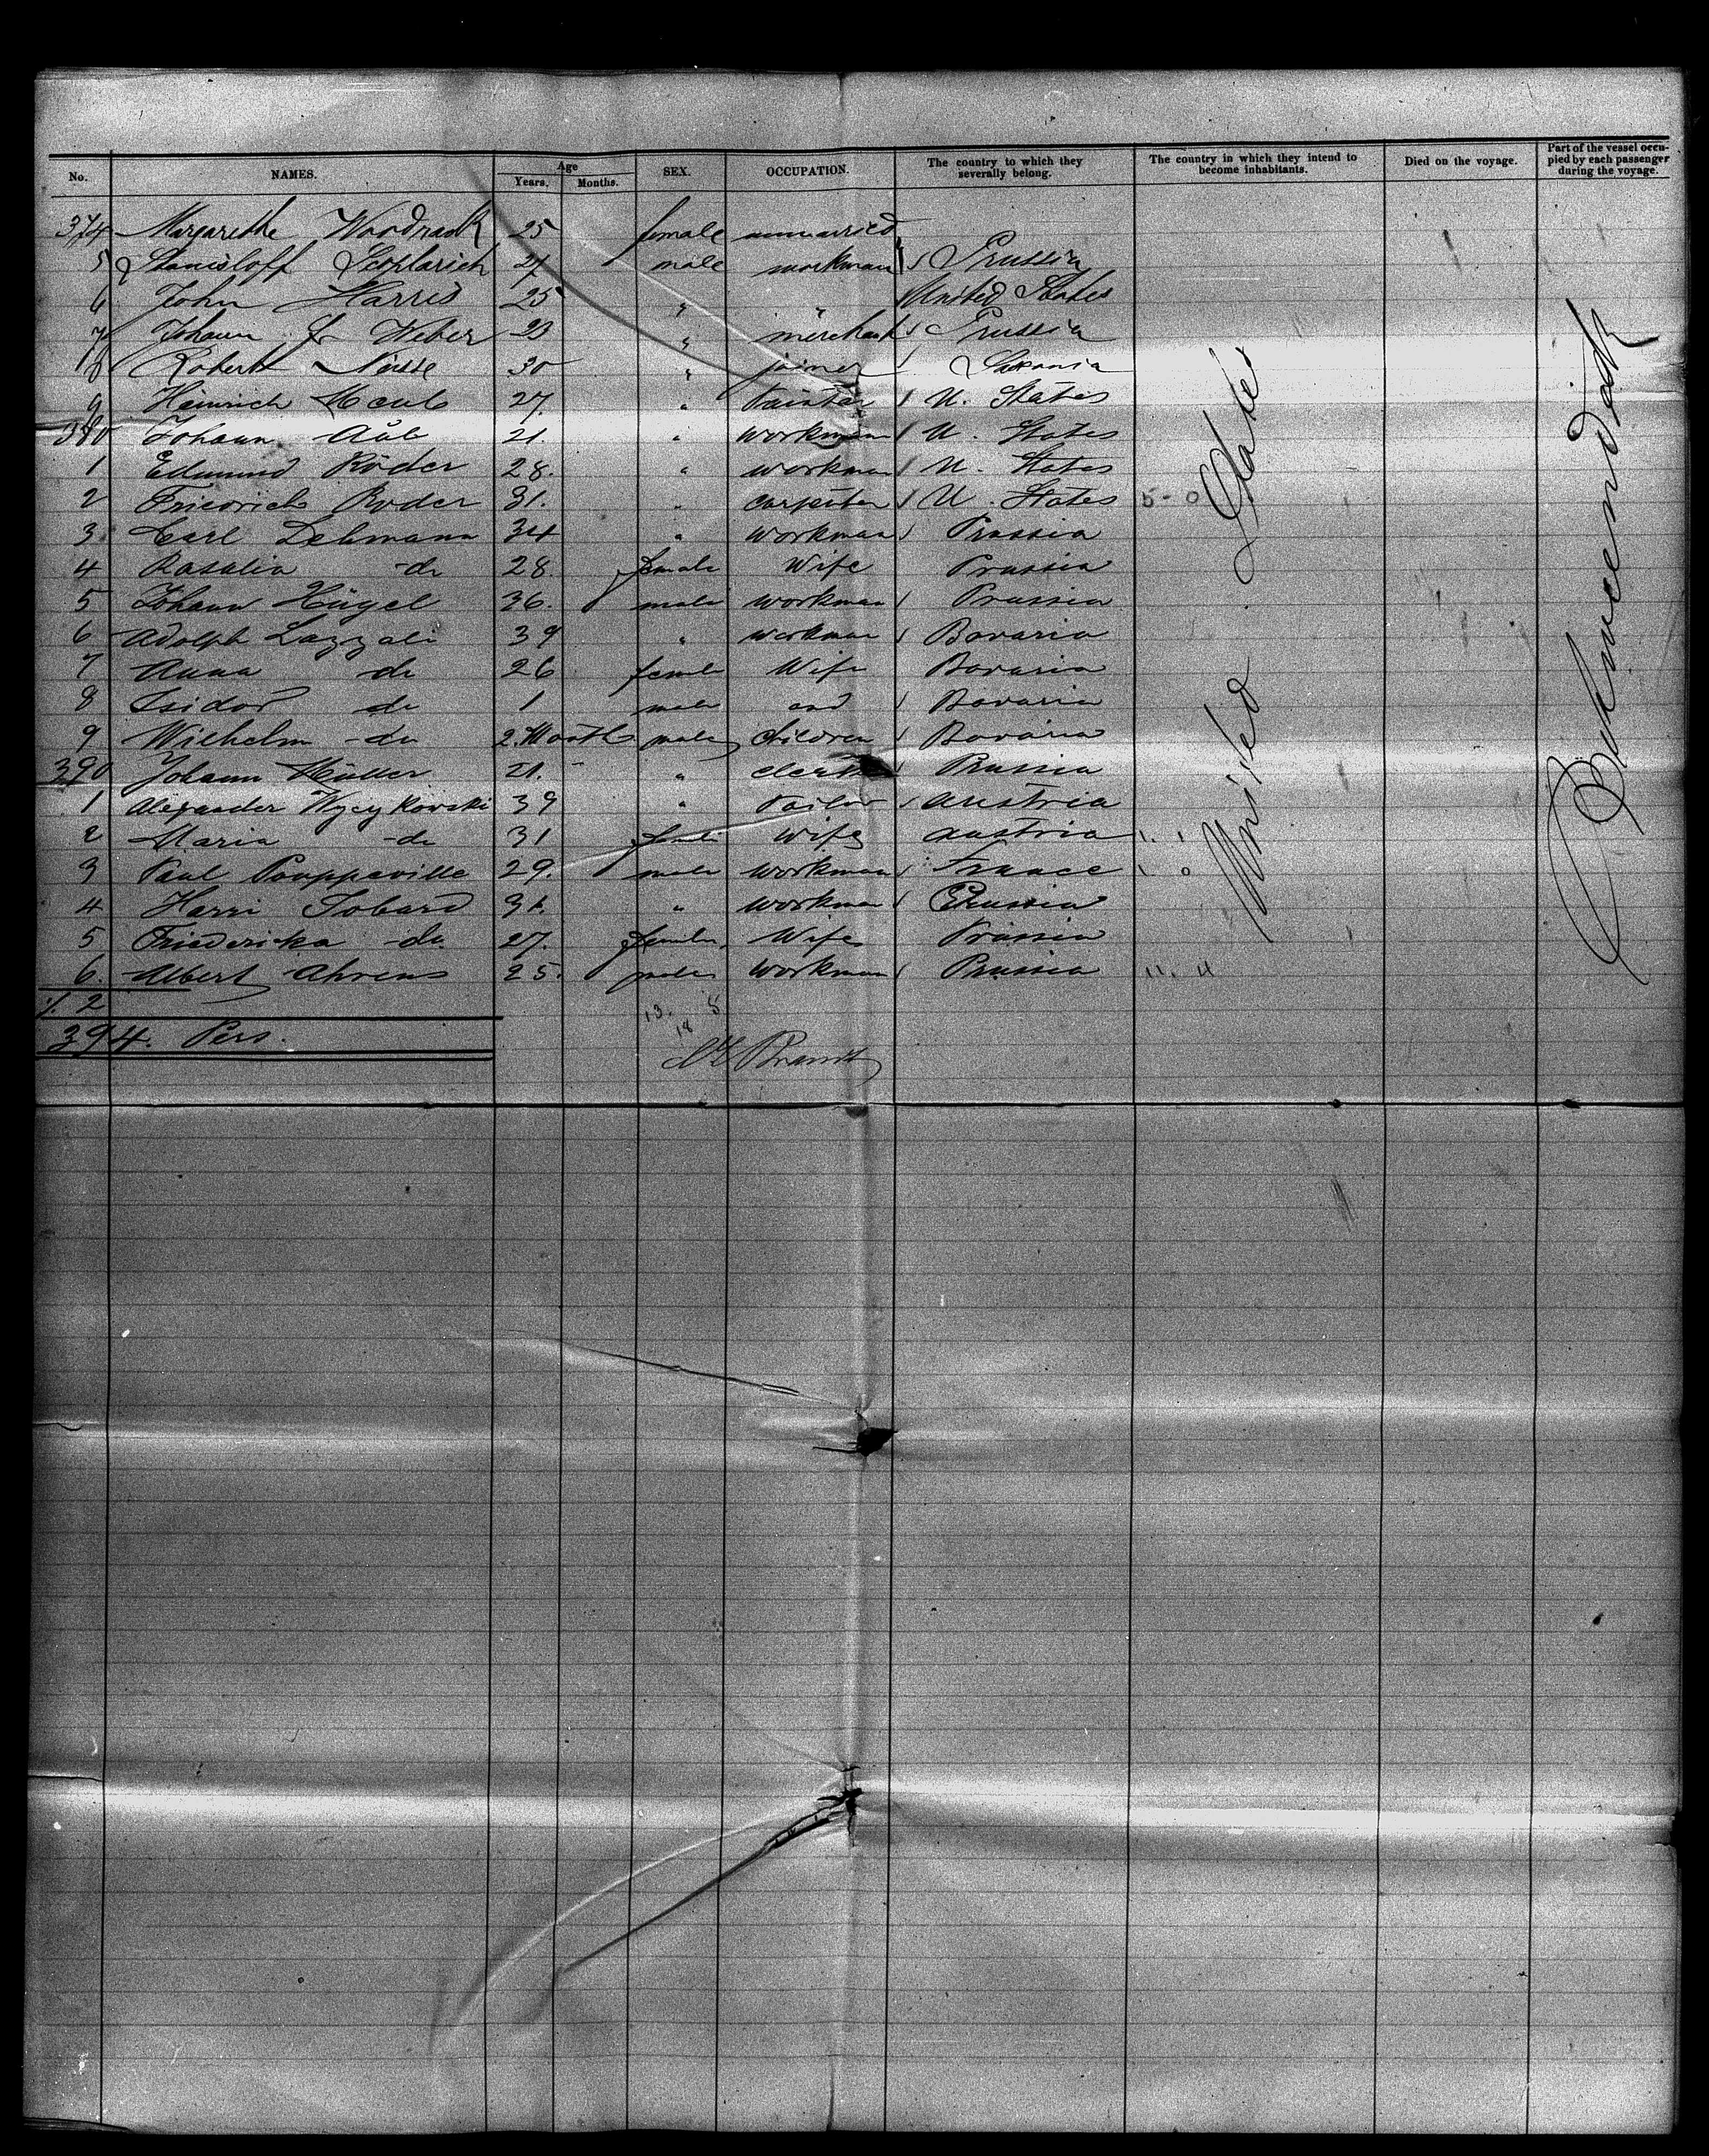 No. NAMES. Age Years. Months. SEX. OCCUPATION. The country to which they severally belong. The country in which they intend to become inhabitants. Died on the voyage. Part of the vessel occupied by each passenger during the voyage.
374 Margarethe 25 female unmarried
5 21 male workman Prussia
6 John Harris 25 " " United States
7 Johann F. Weber 23 " merchant Prussia
8 Robert 30 " joiner Saxonia
9 Heinrich 27. " U. States
380 Johann 21. " workman U. States
1 Edmund Röder 28. " workman U. States
2 Friedrich Roder 31. " carpenter U. States 5 - 0
3 Carl Lehmann 34 " workman Prussia
4 Rosalia do 28. female Wife Prussia
5 Johann Hügel 36. male workman Prussia
6 Adolph Lazzali 39 " workman Bavaria
7 Anna do 26 female Wife Bavaria
8 Isidor do 1 male and Bavaria
9 Wilhelm - do 2. Month male children Bavaria
390 Johann Müller 21. - " clerk Prussia
1 Alexander Wyczykowski 39 " Tailor Austria
2 Maria - do 31 female Wife Austria 1. 1
3 Paul Pouppaville 29. male workman France 1 0
4 Harri Tobard 31. " workman Prussia
5 Friedericka - do 27. female Wife Prussia
6. Albert Ahrens 25. male workman Prussia 11. 4
United States
Zwischendeck
/. 2
394. Pers.
13. 5
18
Brandt